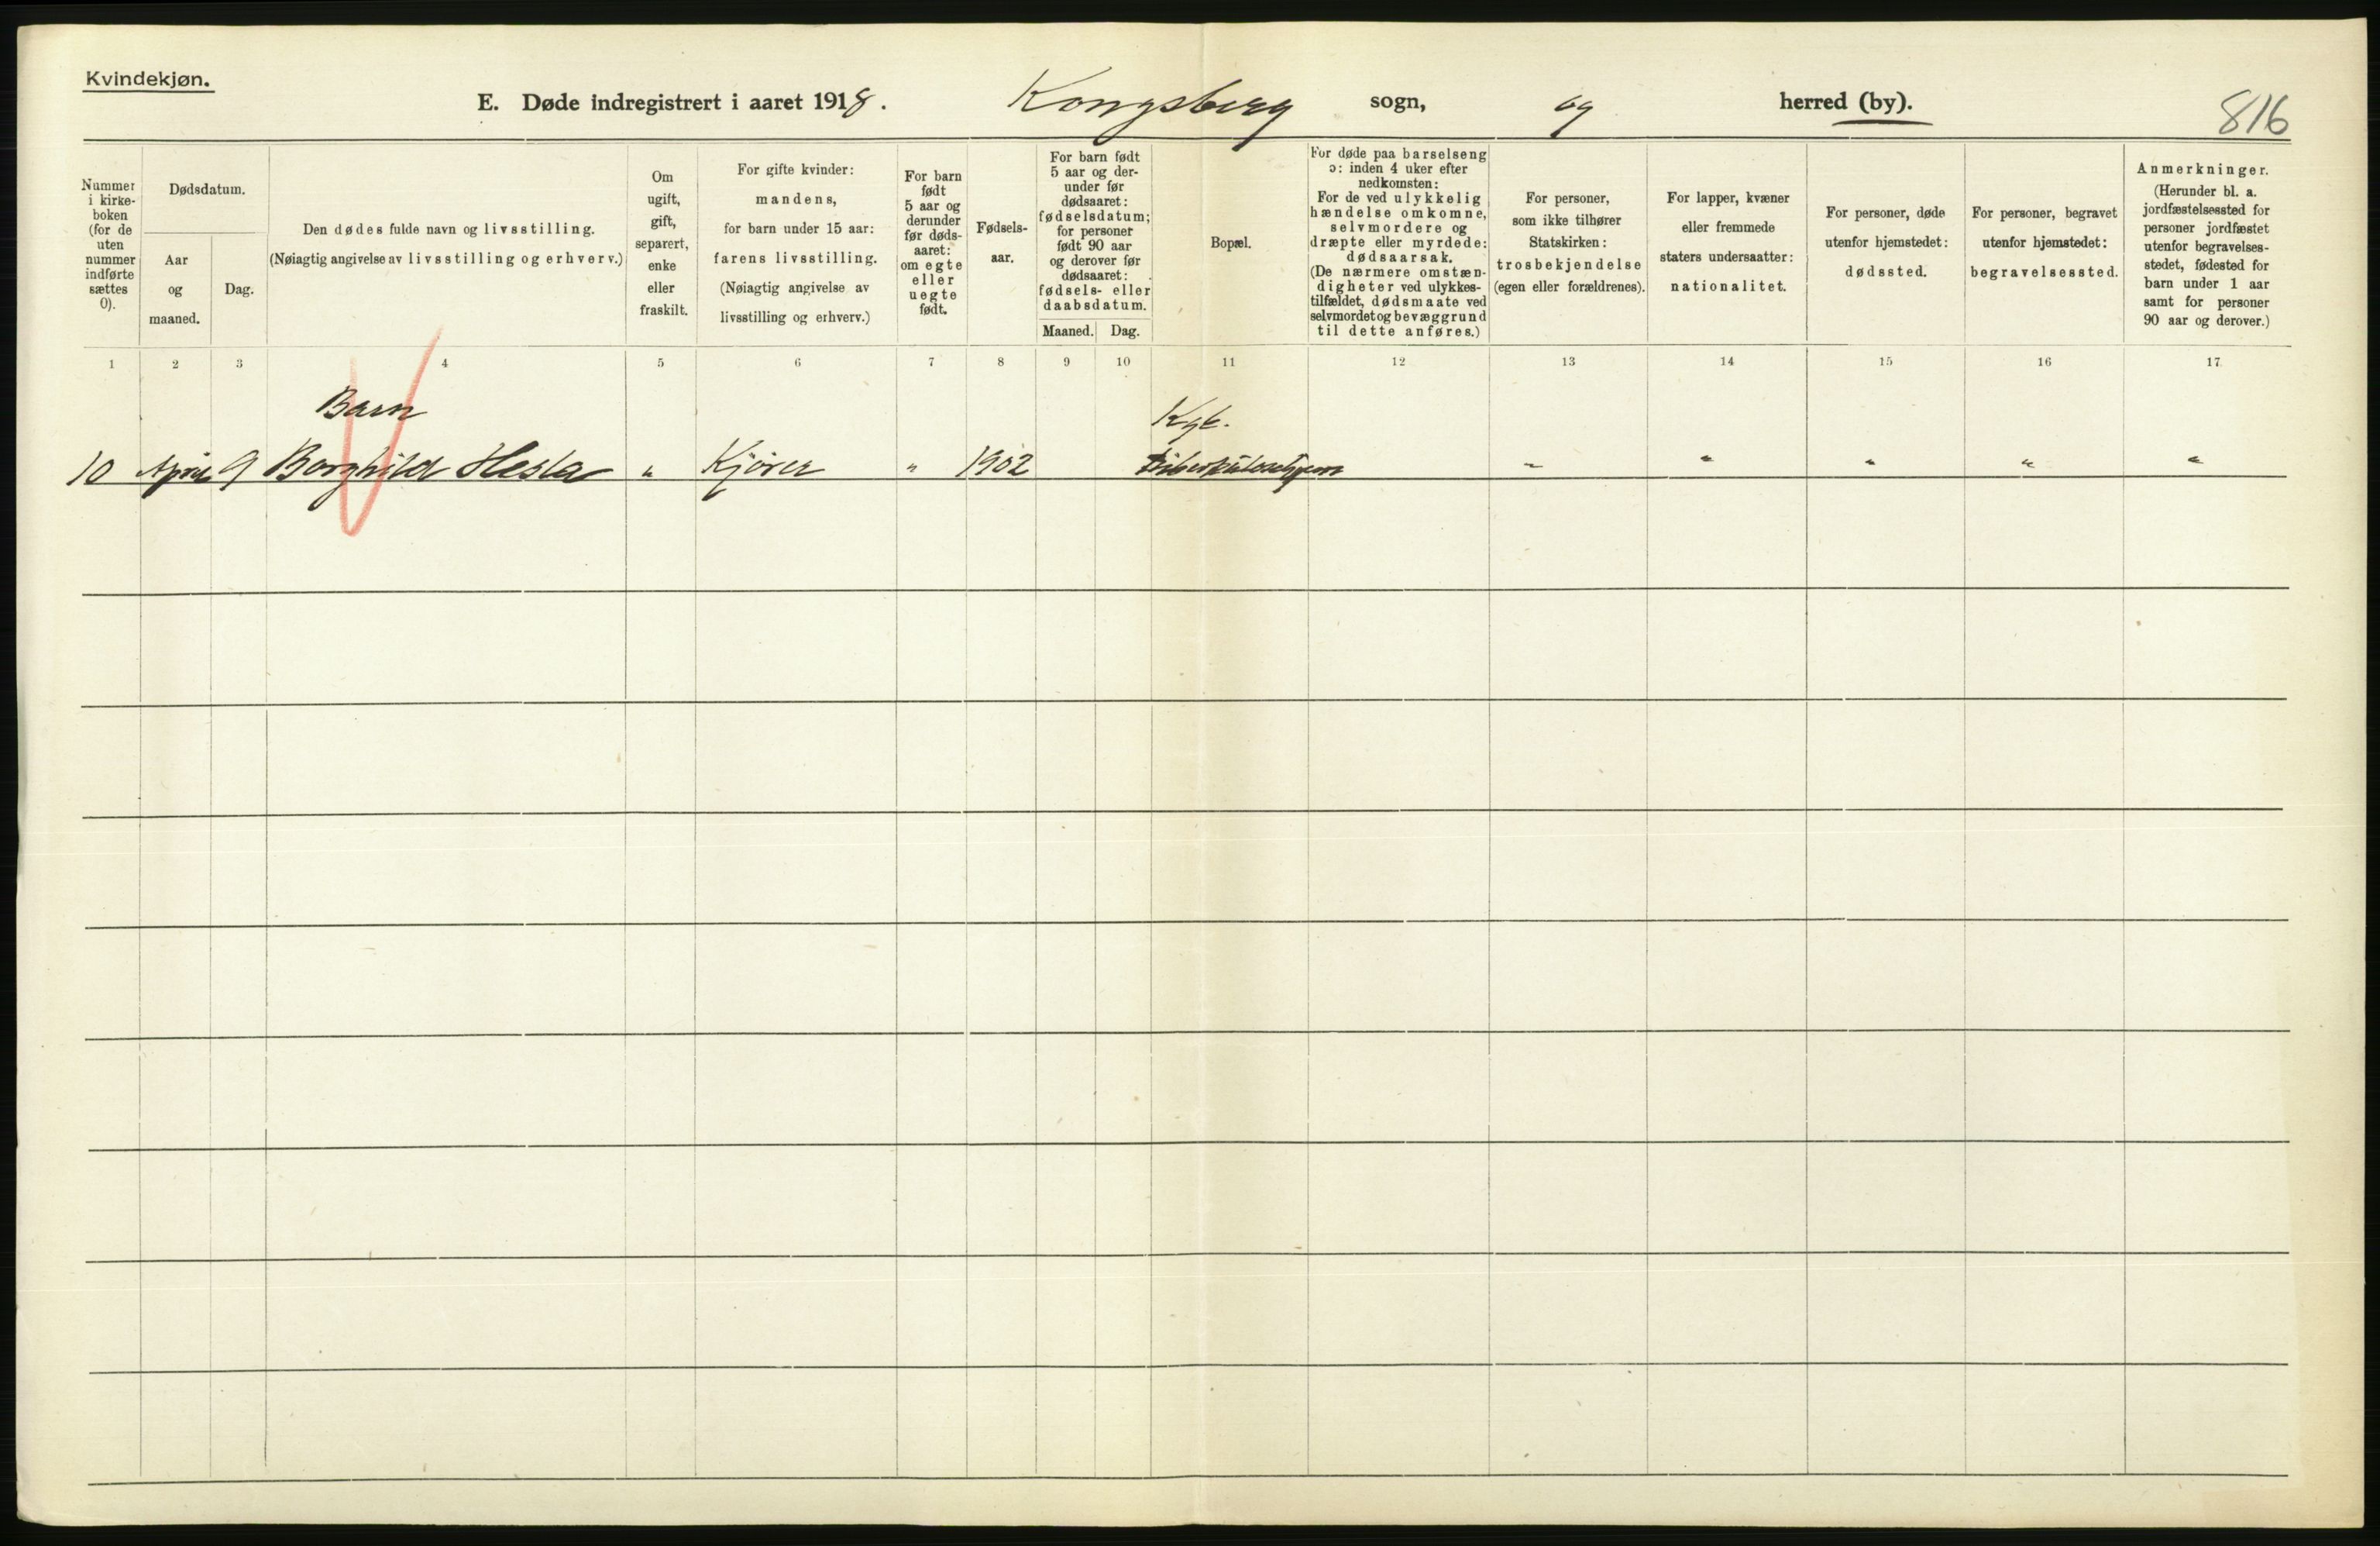 Kvindekjøn.
E. Døde indregistrert i aaret 1918. Kongsberg sogn, og herred (by). 816
Nummer
i kirke-
boken
(for de
uten
nummer
indførte
sættes
0).
Dødsdatum.
Aar
og
maaned.
Dag.
Den dødes fulde navn og livsstilling.
(Nøiagtig angivelse av livsstilling og erhverv.)
Om
ugift,
gift,
separert,
enke
eller
fraskilt.
For gifte kvinder:
mandens,
for barn under 15 aar:
farens livsstilling.
(Nøiagtig angivelse av
livsstilling og erhverv.)
For barn
født
5 aar og
derunder
før døds-
aaret:
om egte
eller
uegte
født.
Fødsels-
aar.
For barn født
5 aar og der-
under før
dødsaaret:
fødselsdatum;
for personer
født 90 aar
og derover før
dødsaaret:
fødsels- eller
daabsdatum.
Maaned. Dag.
Bopæl.
For døde paa barselseng
ɔ: inden 4 uker efter
nedkomsten:
For de ved ulykkelig
hændelse omkomne,
selvmordere og
dræpte eller myrdede:
dødsaarsak.
(De nærmere omstæn-
digheter ved ulykkes-
tilfældet, dødsmaate ved
selvmordet og bevæggrund
til dette anføres.)
For personer,
som ikke tilhører
Statskirken:
trosbekjendelse
(egen eller forældrenes).
For lapper, kvæner
eller fremmede
staters undersaatter:
nationalitet.
For personer, døde
utenfor hjemstedet:
dødssted.
For personer, begravet
utenfor hjemstedet:
begravelsessted.
Anmerkninger.
(Herunder bl. a.
jordfæstelsessted for
personer jordfæstet
utenfor begravelses-
stedet, fødested for
barn under 1 aar
samt for personer
90 aar og derover.)
1 2 3 4 5 6 7 8 9 10 11 12 13 14 15 16 17
Barn Kgb.
10 April 9 Borghild Hesla " Kjører " 1902 " " " " "